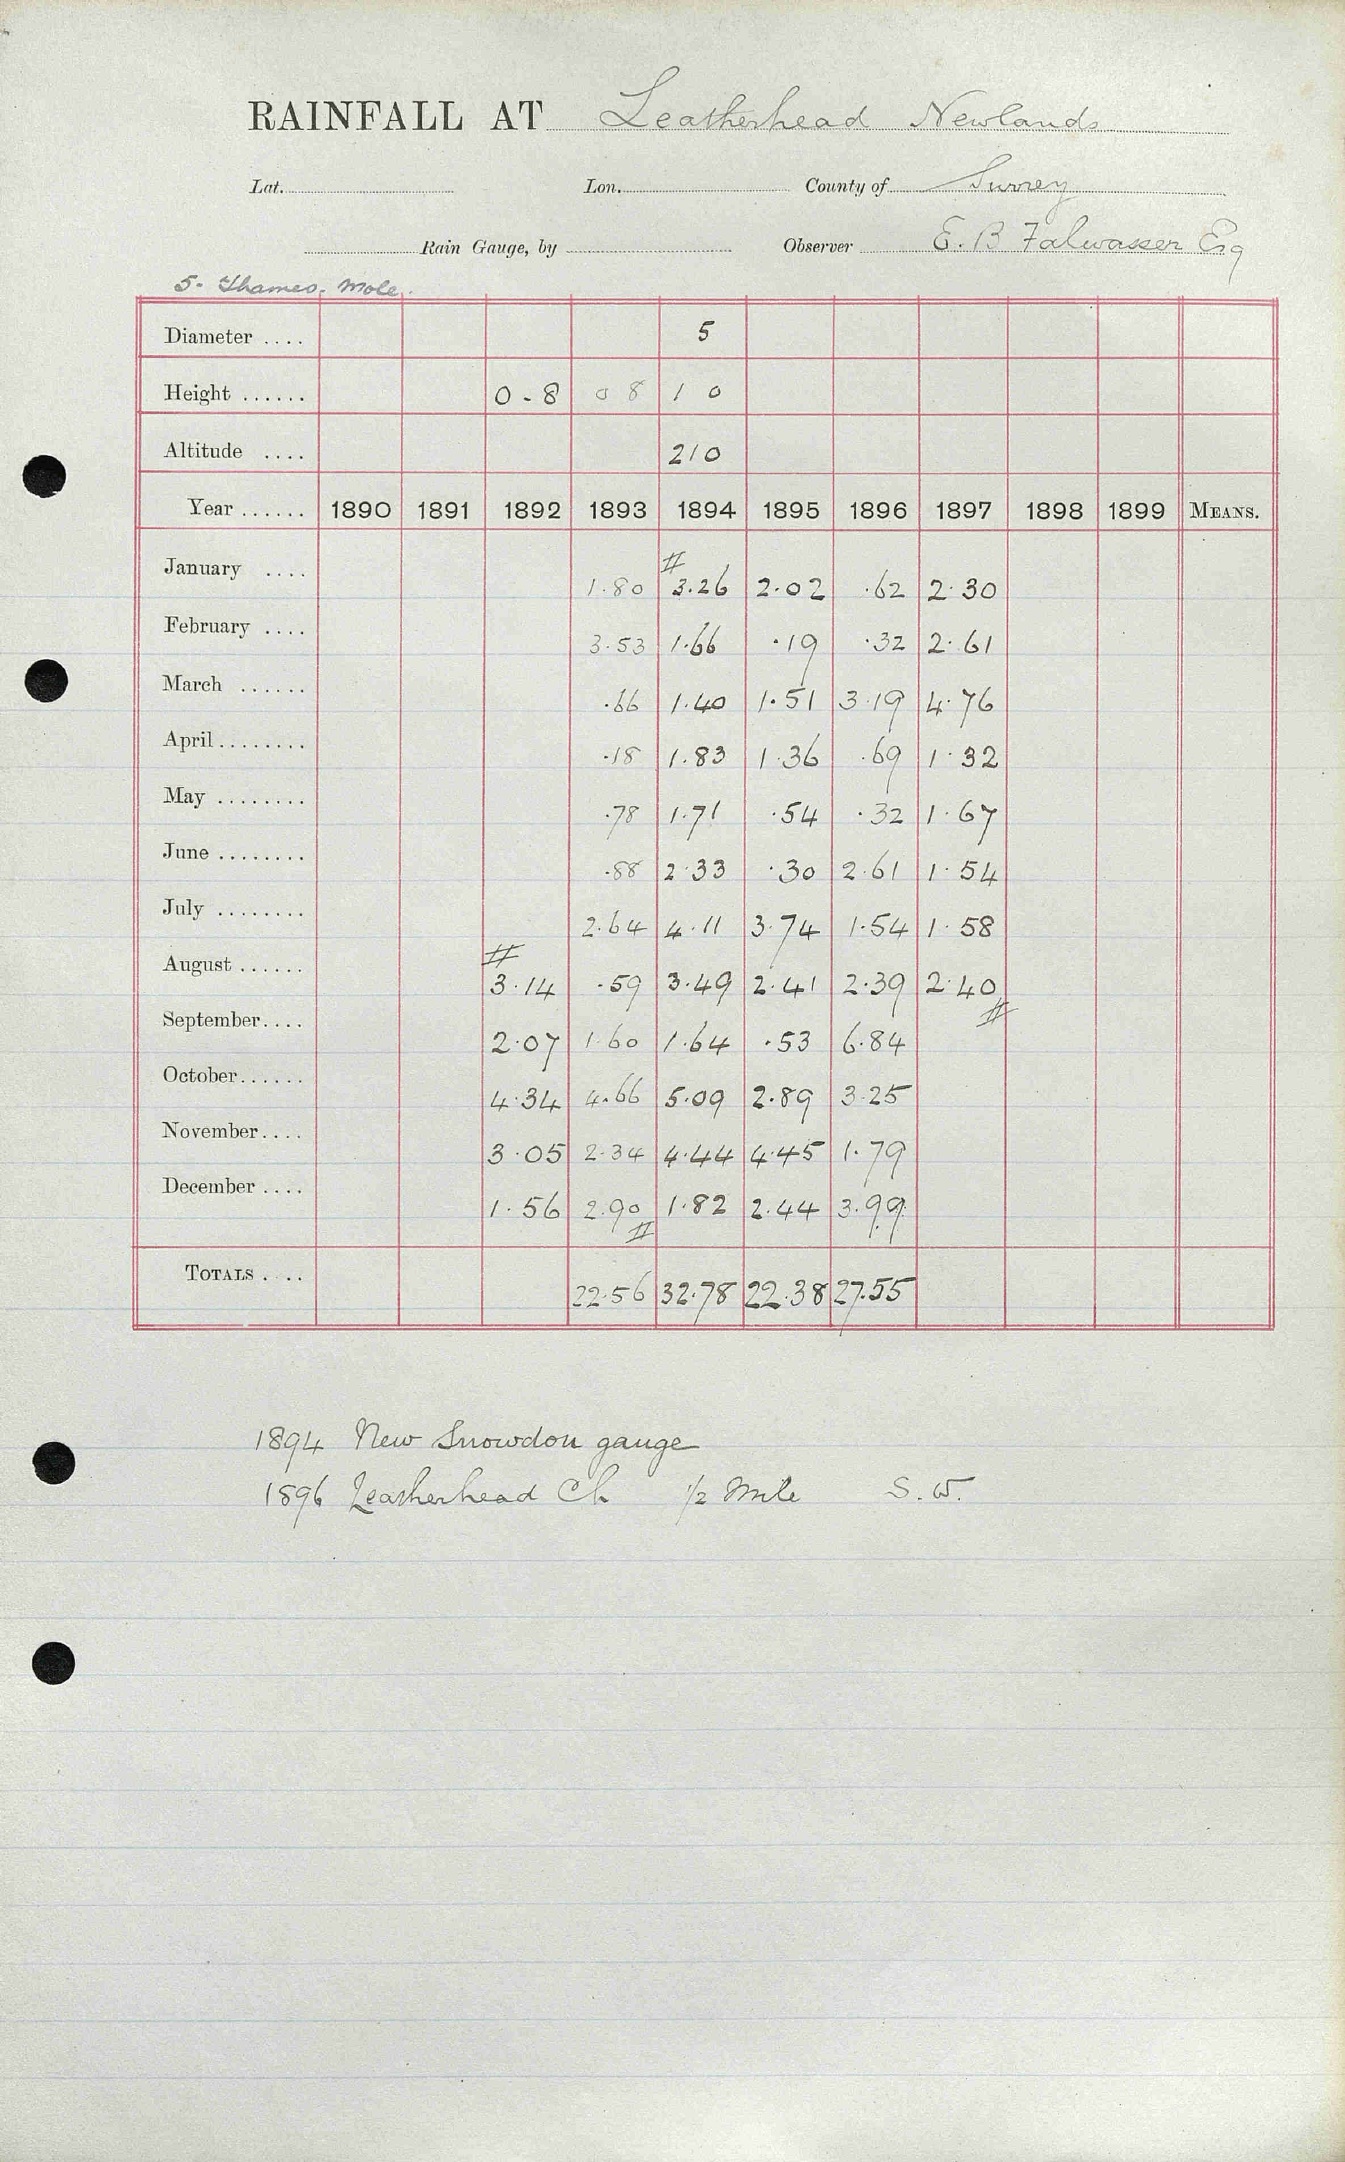 RAINFALL AT Leatherhead Newlands
Lat. Lon. County of Surrey
Rain Gauge, by Observer E. B Falwasser Esq
5. Thames. Mole.
Diameter .... 5
Height ...... 0-8 0 8 1 0
Altitude .... 210
Year ...... 1890 1891 1892 1893 1894 1895 1896 1897 1898 1899 MEANS.
January .... 1.80 # 3.26 2.02 .62 2.30
February .... 3.53 1.66 .19 .32 2.61
March ...... .66 1.40 1.51 3.19 4.76
April ........ .18 1.83 1.36 .69 1.32
May ........ .78 1.71 .54 .32 1.67
June ........ .88 2.33 .30 2.61 1.54
July ........ 2.64 4.11 3.74 1.54 1.58
August ...... # 3.14 .59 3.49 2.41 2.39 2.40 #
September.... 2.07 1.60 1.64 .53 6.84
October...... 4.34 4.66 5.09 2.89 3.25
November.... 3.05 2.34 4.44 4.45 1.79
December .... 1.56 2.90 # 1.82 2.44 3.99
TOTALS .... 22.56 32.78 22.38 27.55
1894 New Snowdon gauge
1896 Leatherhead Ch ½ Mile S.W.